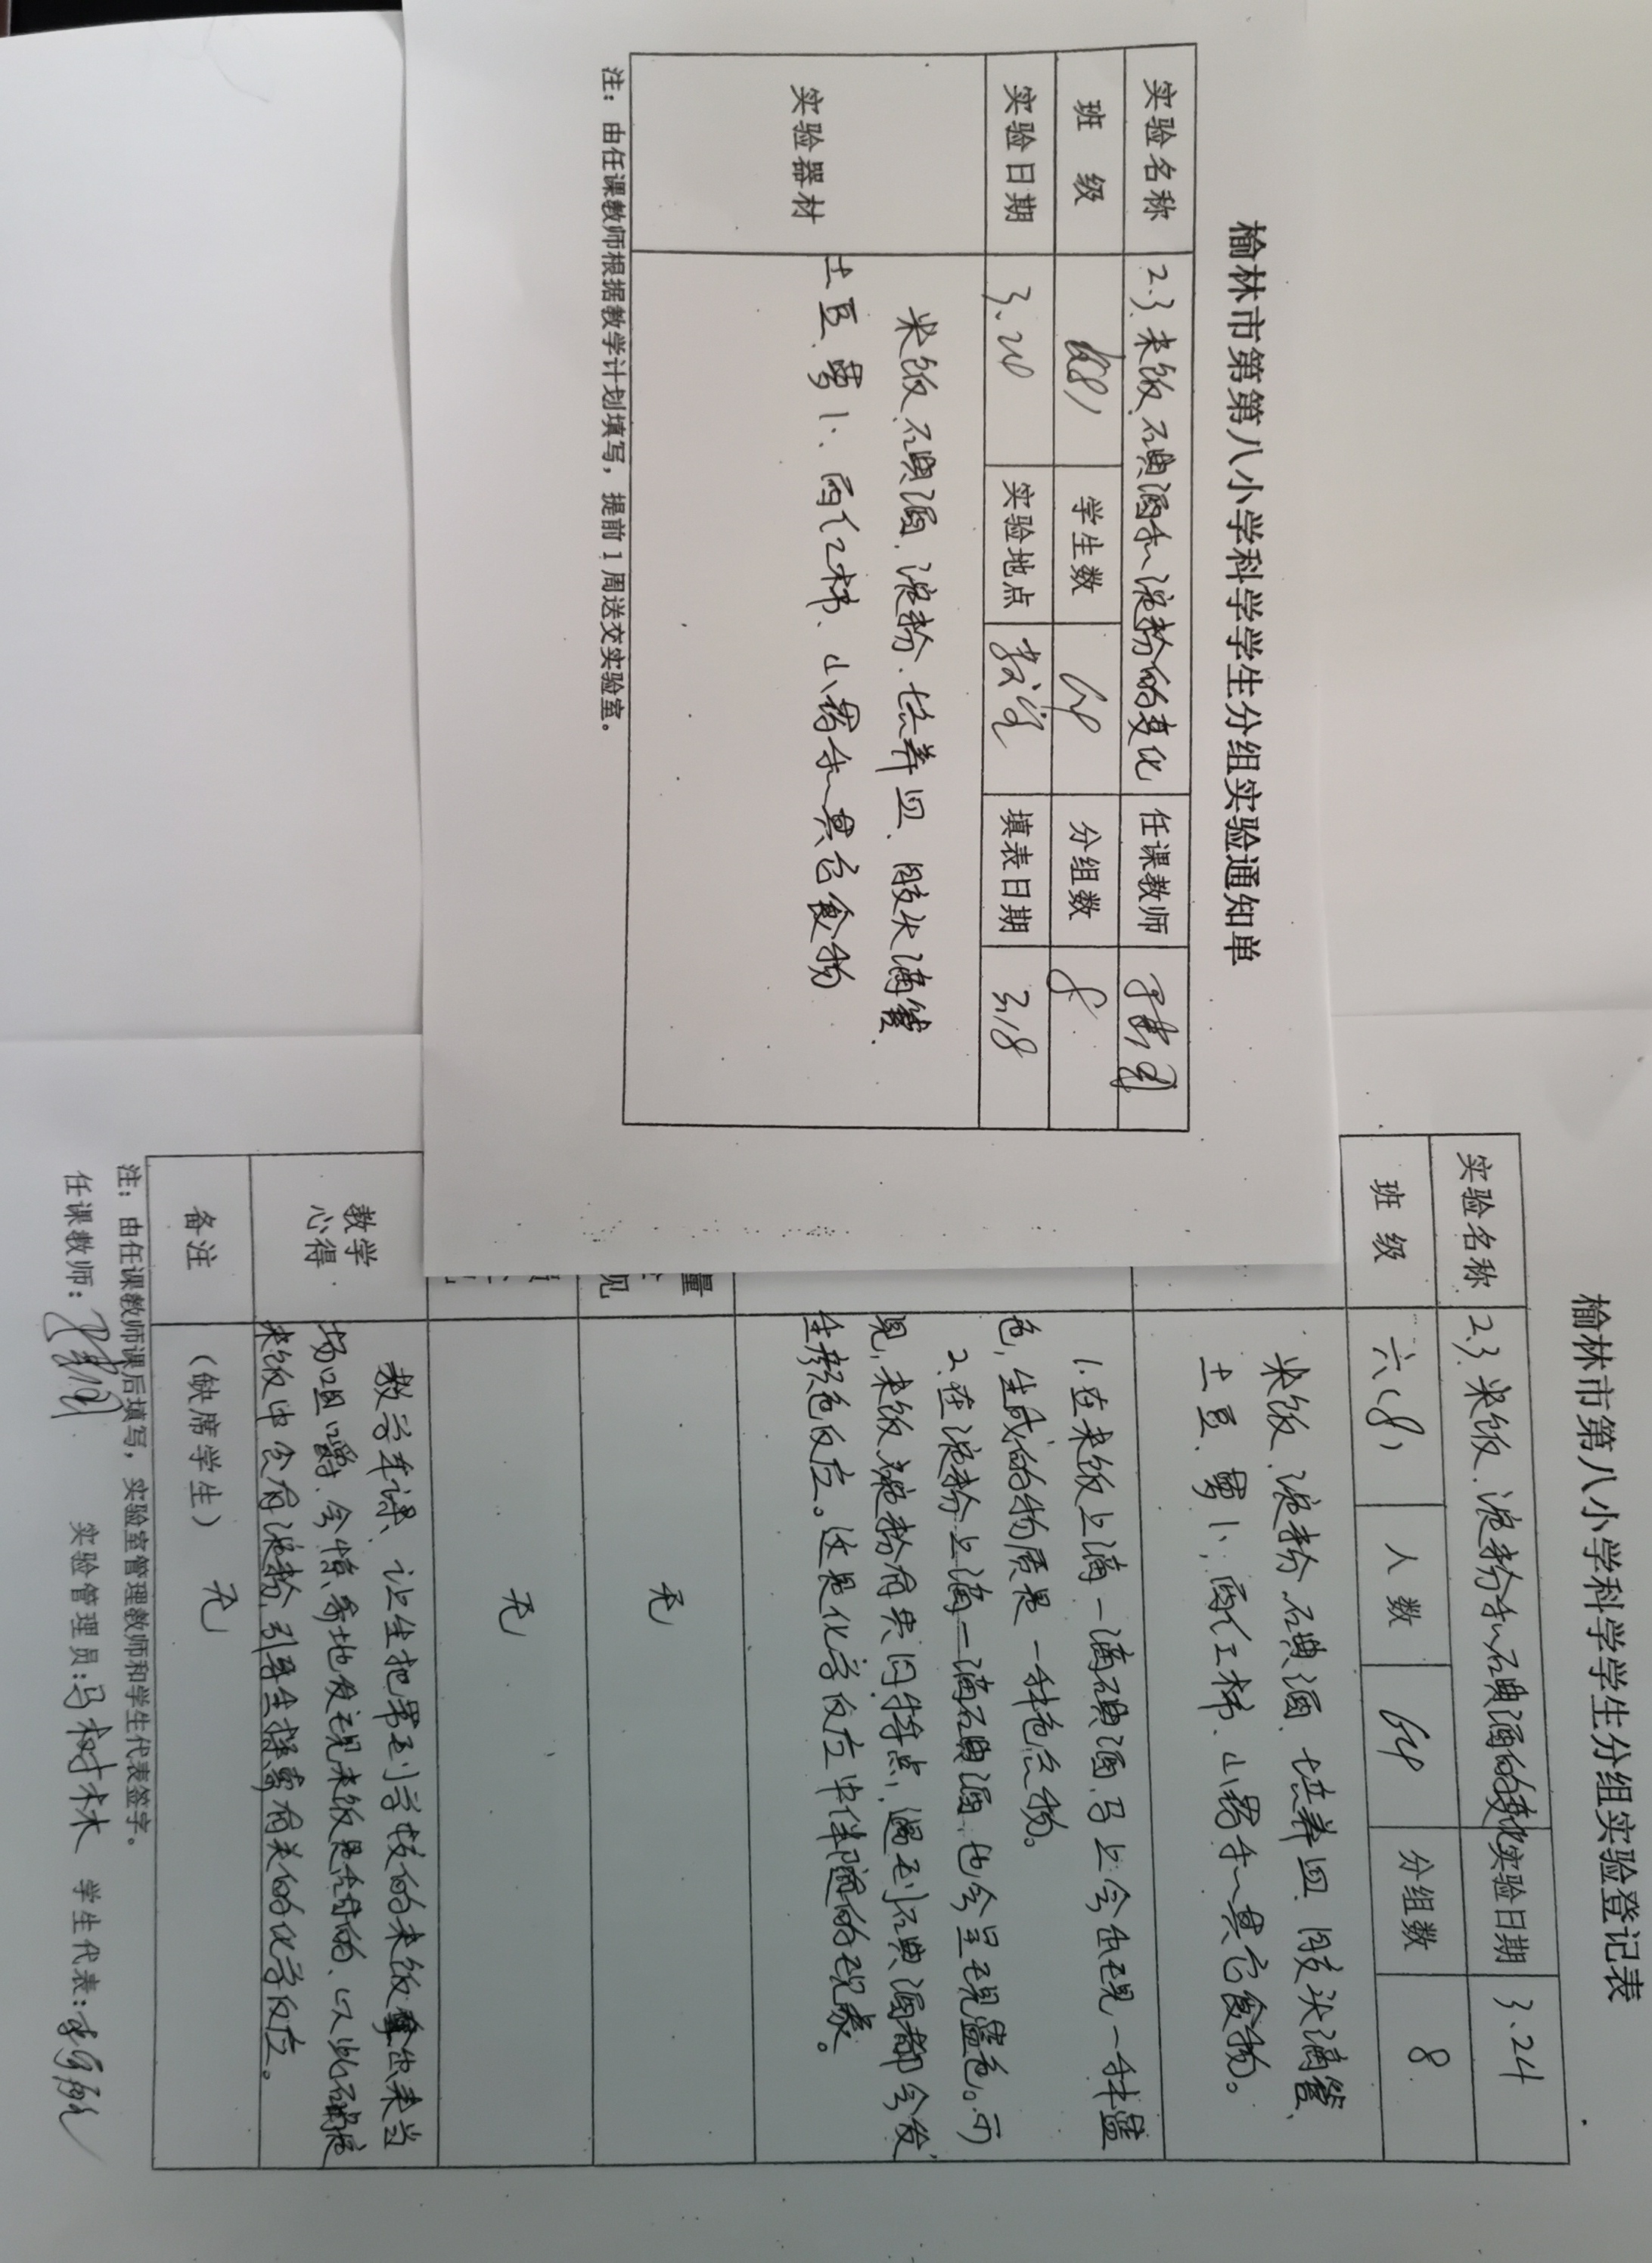 榆林市第第八小学科学学生分组实验通知单
实验名称 2.3 米饭、碘酒和淀粉的变化 任课教师
班 级 学生数 64 分组数 8
实验日期 3.24 实验地点 教室 填表日期 3.18
实验器材
米饭、碘酒、淀粉、培养皿、胶头滴管、
土豆、萝卜、西红柿、山楂和其它食物
注：由任课教师根据教学计划填写，提前1周送交实验室。
榆林市第八小学科学学生分组实验登记表
实验名称 2.3.米饭、淀粉和碘酒的变化 实验日期 3.24
班 级 六(8) 人 数 64 分组数 8
米饭、淀粉、碘酒、培养皿、胶头滴管、
土豆、萝卜、西红柿、山楂和其它食物。
1.在米饭上滴一滴碘酒，马上会出现一种蓝
色，生成的物质是一种色的物。
2.在淀粉上滴一滴碘酒，也会呈现蓝色。可
见，米饭、淀粉有共同特点，遇到碘酒都会发
生颜色反应。这是化学反应中伴随的现象。
量
见
无
无
教学
心得
教学本课，让生把带到学校的米饭拿出来当
场咀嚼，会惊奇地发现米饭是甜的，以此
米饭中含有淀粉，引导生探索有关的化学反应。
备注 （缺席学生） 无
注：由任课教师课后填写，实验室管理教师和学生代表签字。
任课教师： 实验管理员：马树林 学生代表：